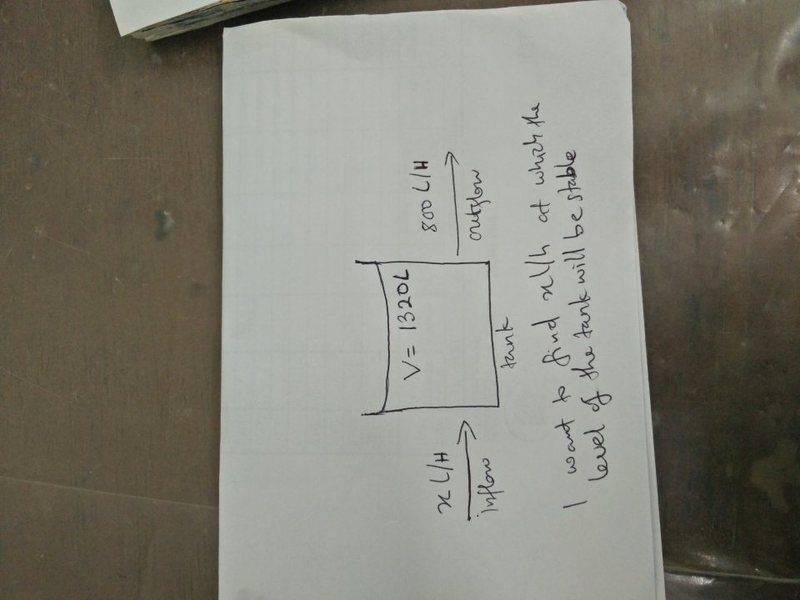 x L/H
inflow
V = 1320L
tank
800 L/H
outflow
I want to find x l/h at which the
level of the tank will be stable